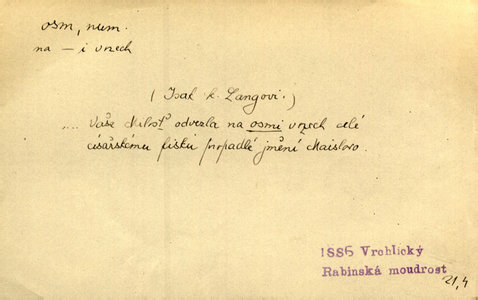 osm, num.
na — i vozech
(Isak k. Langovi.)
.... Vaše Milosť odvezla na osmi vozech celé
císařskému fisku propadlé jmění Maislovo.
1886 Vrchlický
Rabínská moudrost
21,4